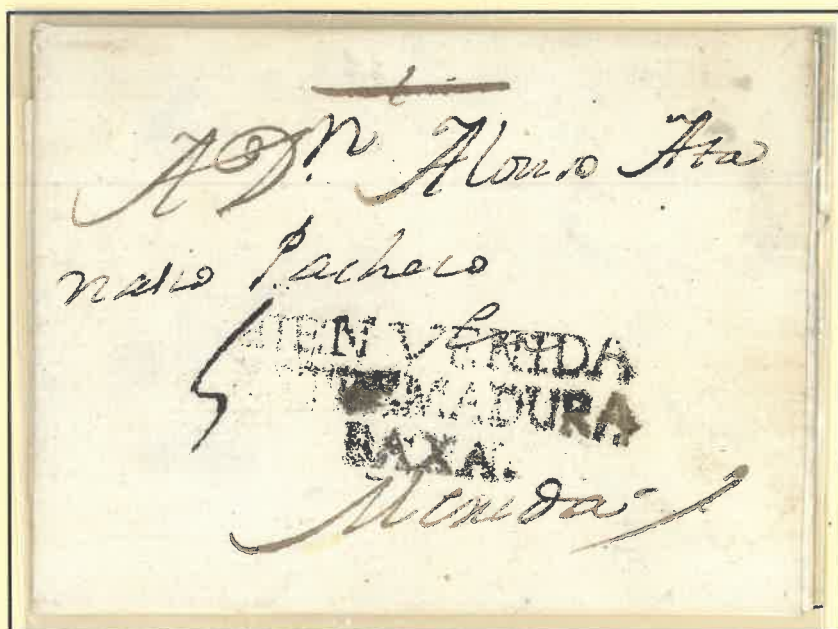 A Dn Alonso Ata
nasio Pacheco
BIENVENIDA
ESTREMADURA
BAXA.
Merida